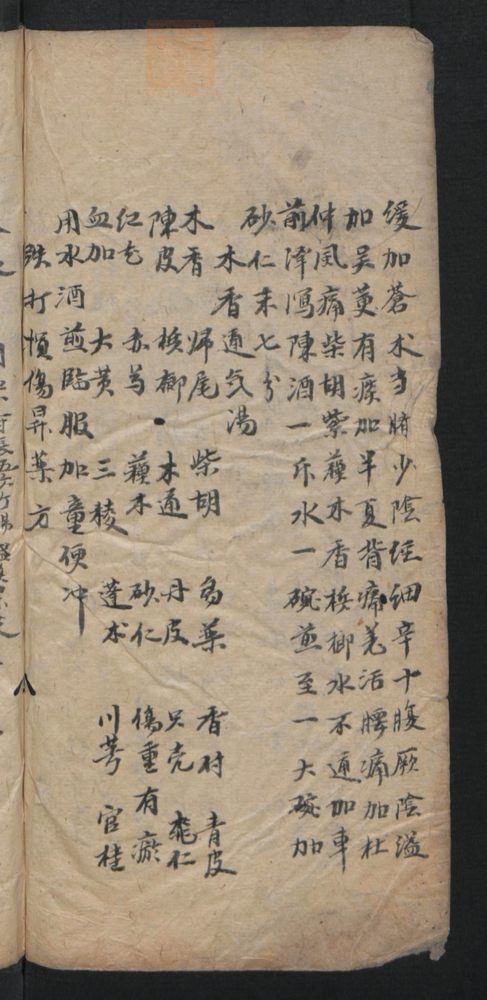 缓加蒼术当臍少陰経細辛十腹厥陰溢
加吴萸有痰加半夏背痛羌活腰痛加杜
仲風痛柴胡紫蘓木香槟榔水不通加車
前泽瀉陳酒一斤水一碗煎至一大碗加
砂仁末七分
木香通气湯
木香 归尾 柴胡 烏薬 香附 青皮
陳皮 槟榔 木通 丹皮 只壳 桃仁
红花 赤芍 蘓木 砂仁 傷重有瘀
血加 大黄 三稜 蓬术 川芎 官桂
用水酒煎臨服加童便冲
跌打損傷昇薬方